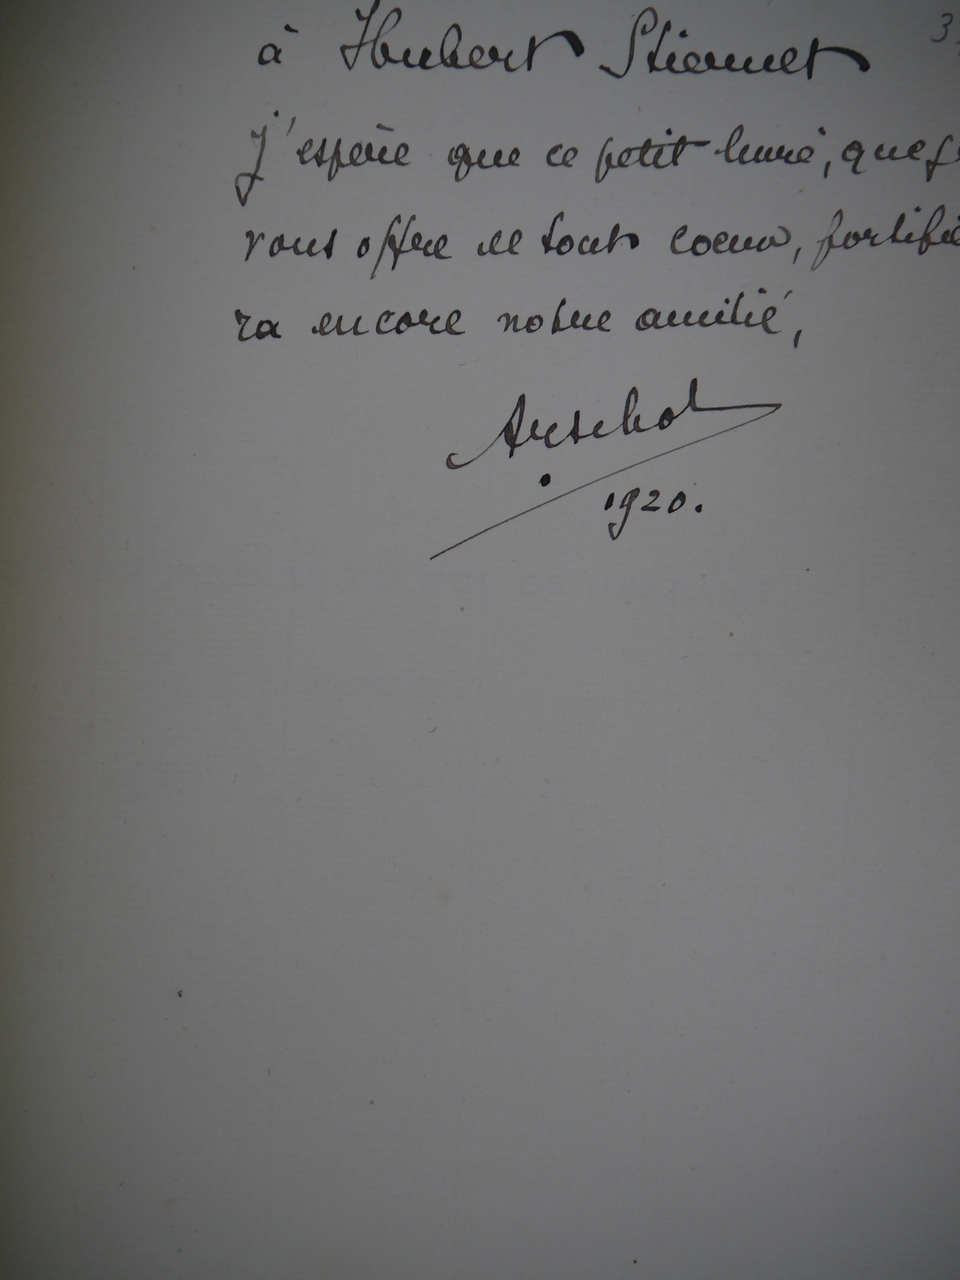 3
à Hubert Stiernet
j'espère que ce petit livre, que j
vous offre de tout coeur, fortifie
ra encore notre amitié,
Arschot
1920.